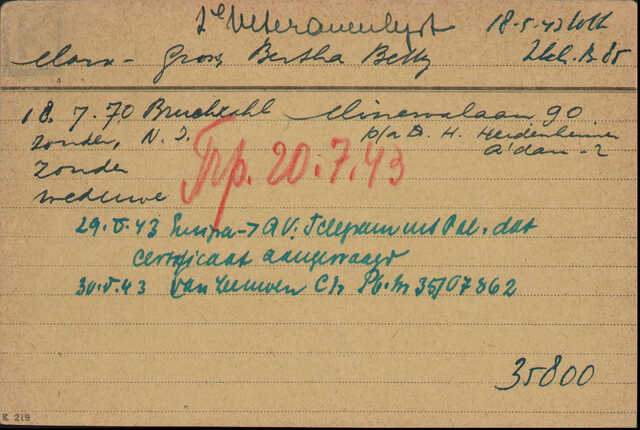 2e Veteranenlyst 18-5-43
Marx - Gross Bertha Betty Bk. B 85
18.7.70 Bruchzahl Minervalaan 90
zonder, N.I. p/a D. H. Heidenheimer
zonder A'dam-Z
Trp. 20.7.43
weduwe
29.5.43 AV. Telegram uit Pal. dat
certificaat aangevraagd
30.5.43 van Leeuwen Ch Pb. Nr 35/07862
35800
K 219